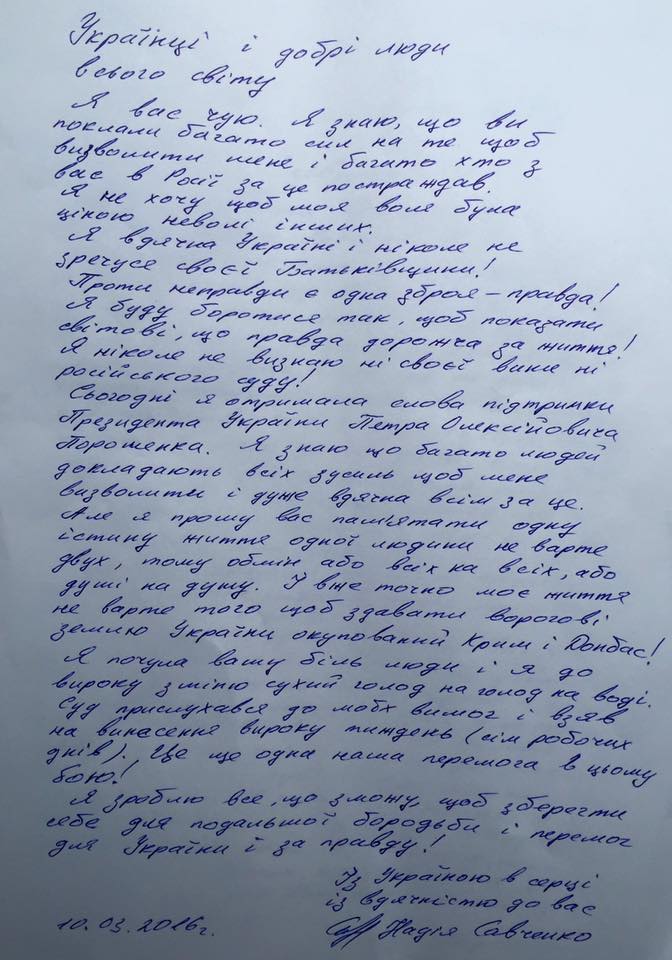 Українці і добрі люди
всього світу
Я вас чую. Я знаю, що ви
поклали багато сил на те щоб
визволити мене і багато хто з
вас в Росії за це постраждав.
Я не хочу щоб моя воля була
ціною неволі інших.
Я вдячна Україні і ніколе не
зречусе своєї Батьківщини!
Проти неправди є одна зброя – правда!
Я буду боротисе так, щоб показати
світові, що правда дорожча за життя!
Я ніколе не визнаю ні своєї вини ні
російського суду!
Сьогодні я отримала слова підтримки
Президента України Петра Олексійовича
Порошенка. Я знаю що багато людей
докладають всіх зусиль щоб мене
визволити і дуже вдячна всім за це.
Але я прошу вас пам'ятати одну
істину життя одної людини не варте
двух, тому обмін або всіх на всіх, або
душі на душу. І вже точно моє життя
не варте того щоб здавати ворогові
землю України окупований Крим і Донбас!
Я почула вашу біль люди і я до
вироку зміню сухий голод на голод на воді.
Суд прислухався до моїх вимог і взяв
на винесення вироку тиждень (сім робочих
днів). Це ще одна наша перемога в цьому
бою!
Я зроблю все, що зможу, щоб зберегти
себе для подальшої бородьби і перемог
для України і за правду!
Із Україною в серці
із вдячністю до вас
10.03.2016г. Надія Савченко